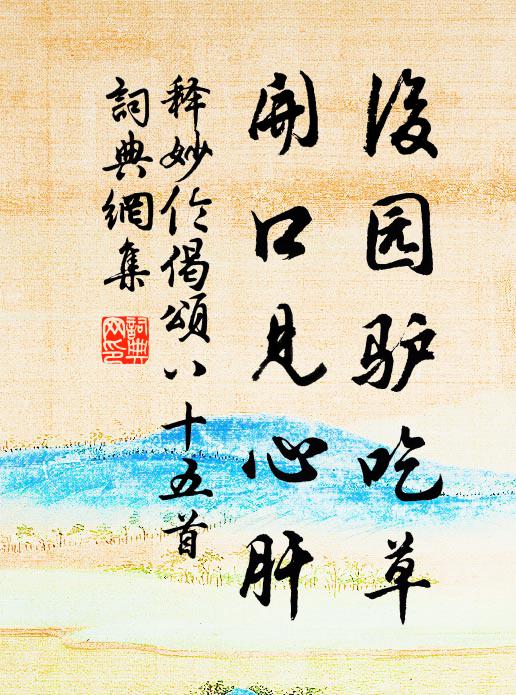 後园驴吃草
開口見心肝
释妙伦偈頌八十五首
詞典網集
詞典網印